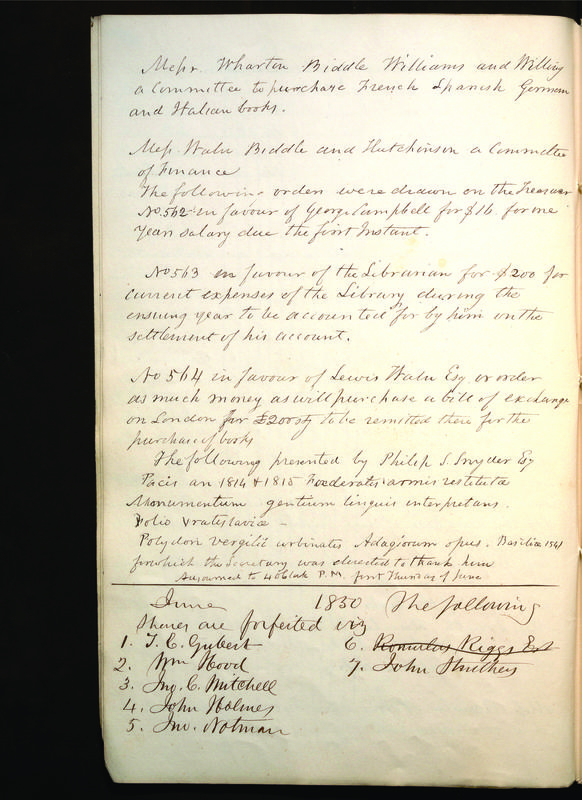 Messr. Wharton Biddle Williams and Willing
a Committee to purchase French Spanish German
and Italian books.
Mess. Waln Biddle and Hutchinson a Committee
of Finance
The following orders were drawn on the Treasurer
No. 562 in favour of George Campbell for $16. for one
Years salary due the first Instant.
No 563 in favour of the Librarian for $200 for
current expenses of the Library during the
ensuing year to be accounted for by him on the
settlement of his account.
No 564 in favour of Lewis Waln Esq. or order
as much money as will purchase a bill of exchange
on London for £200 stg to be remitted there for the
purchase of books
The following presented by Philip S. Snyder Esq
Pacis an 1814 & 1815 Foederatis armis restitutæ
Monumentum gentium linguis interpretans.
Folio Vratislaviæ –
Polydori Vergilii urbinates Adagiorum opus. Basiliæ 1541
for which the Secretary was directed to thank him
Adjourned to 4 oClock P.M. first Thursday of June
June 1830 The following
Shares are forfeited viz
1. T. C. Gubert
2. Wm Hood
3. Jno. C. Mitchell
4. John Holmes
5. Jno. Notman
6. Romulus Riggs Est
7. John Struthers